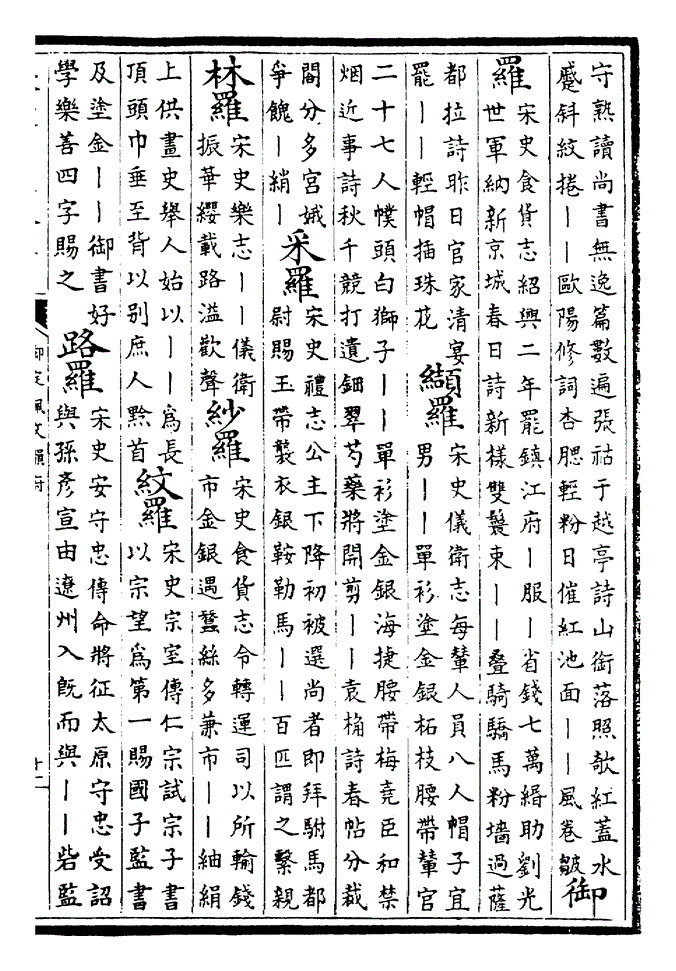 守熟讀尚書無逸篇數遍張祜于越亭詩山銜落照欹紅蓋水
蹙斜紋捲丨丨歐陽修詞杏腮輕粉日催紅池面丨丨風卷皺御
羅宋史食貨志紹興二年罷鎮江府丨服丨省錢七萬緡助劉光
世軍納新京城春日詩新樣雙鬟束丨丨疊騎驕馬粉墻過薩
都拉詩昨日官家清宴
罷丨丨輕帽插珠花
纈羅宋史儀衛志每輦人員八人帽子宜
男丨丨單衫塗金銀柘枝腰帶輦官
二十七人幞頭白獅子丨丨單衫塗金銀海捷腰帶梅堯臣和禁
烟近事詩秋千競打遺鈿翠芍藥將開剪丨丨袁桷詩春帖分裁
閤分多宮娥
爭餽丨綃丨
采羅宋史禮志公主下降初被選尚者即拜駙馬都
尉賜玉帶襲衣銀鞍勒馬丨丨百匹謂之繫親
林羅宋史樂志丨丨儀衛
振華纓載路溢歡聲
紗羅宋史食貨志令轉運司以所輸錢
市金銀遇蠶絲多兼市丨丨紬絹
上供畫史舉人始以丨丨為長
頂頭巾垂至背以别庶人黔首
紋羅宋史宗室傳仁宗試宗子書
以宗望為第一賜國子監書
及塗金丨丨御書好
學樂善四字賜之
路羅宋史安守忠傳命將征太原守忠受詔
與孫彥宣由遼州入既而與丨丨砦監
御定佩文韻府
十二